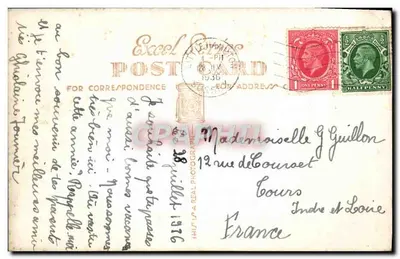 Excel Series
POST CARD
FOR CORRESPONDENCE
FOR ADDRESS
1936
ONE PENNY
HALFPENNY
28 juillet 1936
Je souhaite que tu passes
d'aussi bonnes vacances
que moi - Nous sommes
très bien ici. Où vas-tu
cette année? Rappelle-moi
au bon souvenir de tes parents
et je t'envoie mes meilleures amitiés
Ghislaine
Mademoiselle G Guillon
12 rue de Courset
Tours
Indre et Loire
France